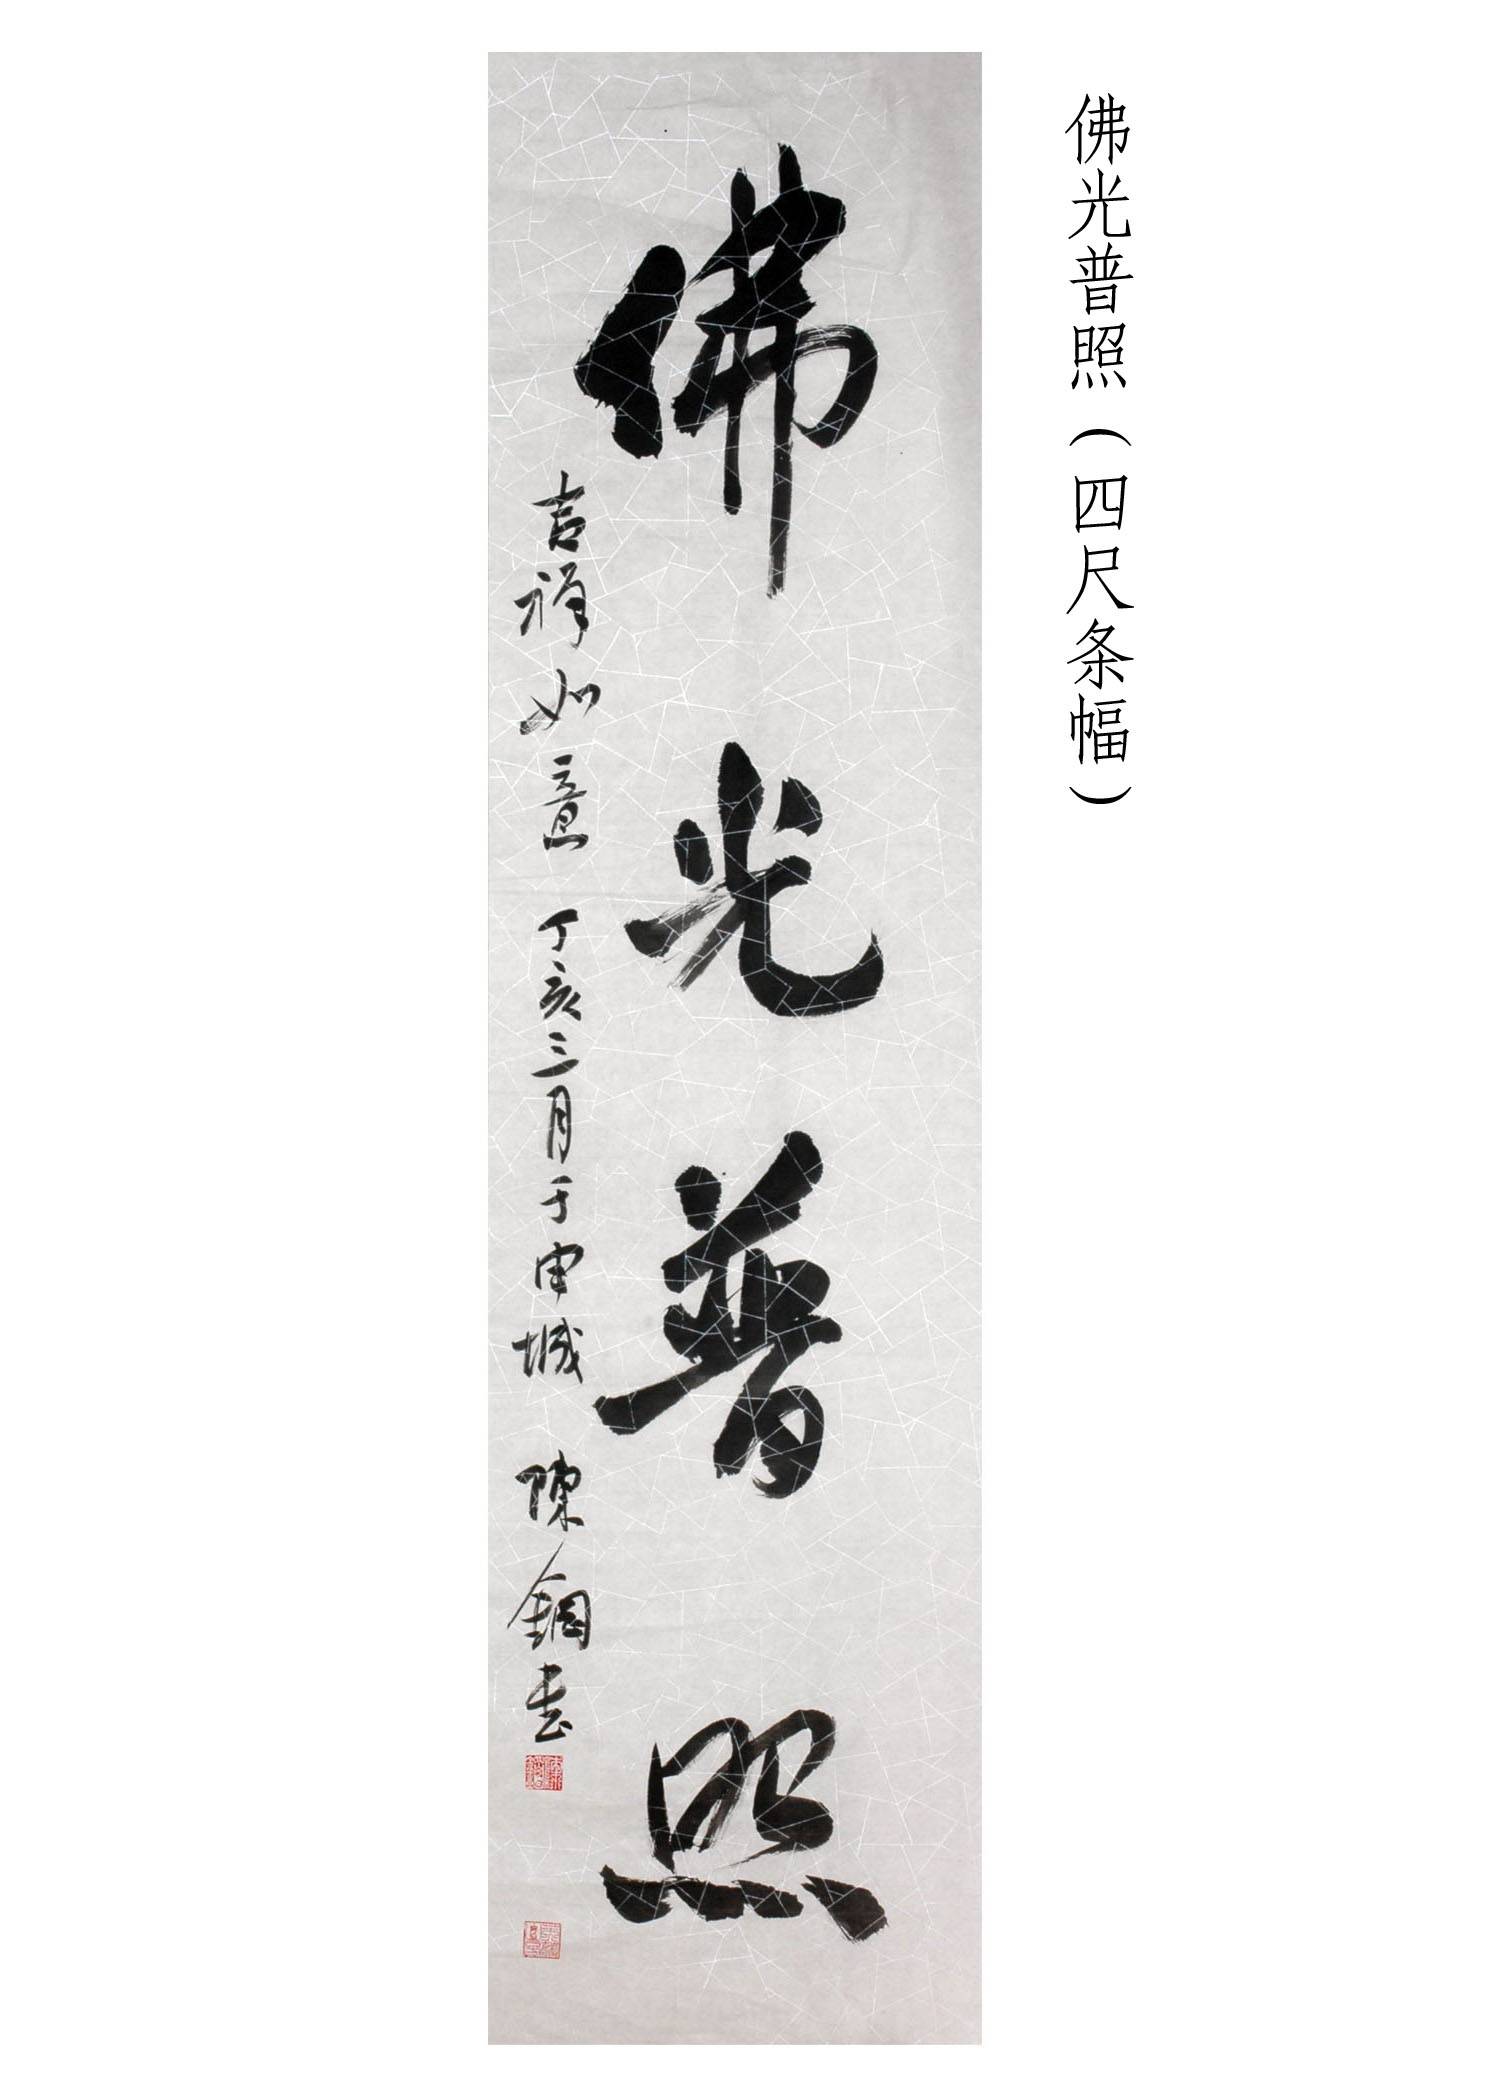 佛光普照（四尺条幅）
佛光普照
吉祥如意 丁亥三月于申城 陳鋼書